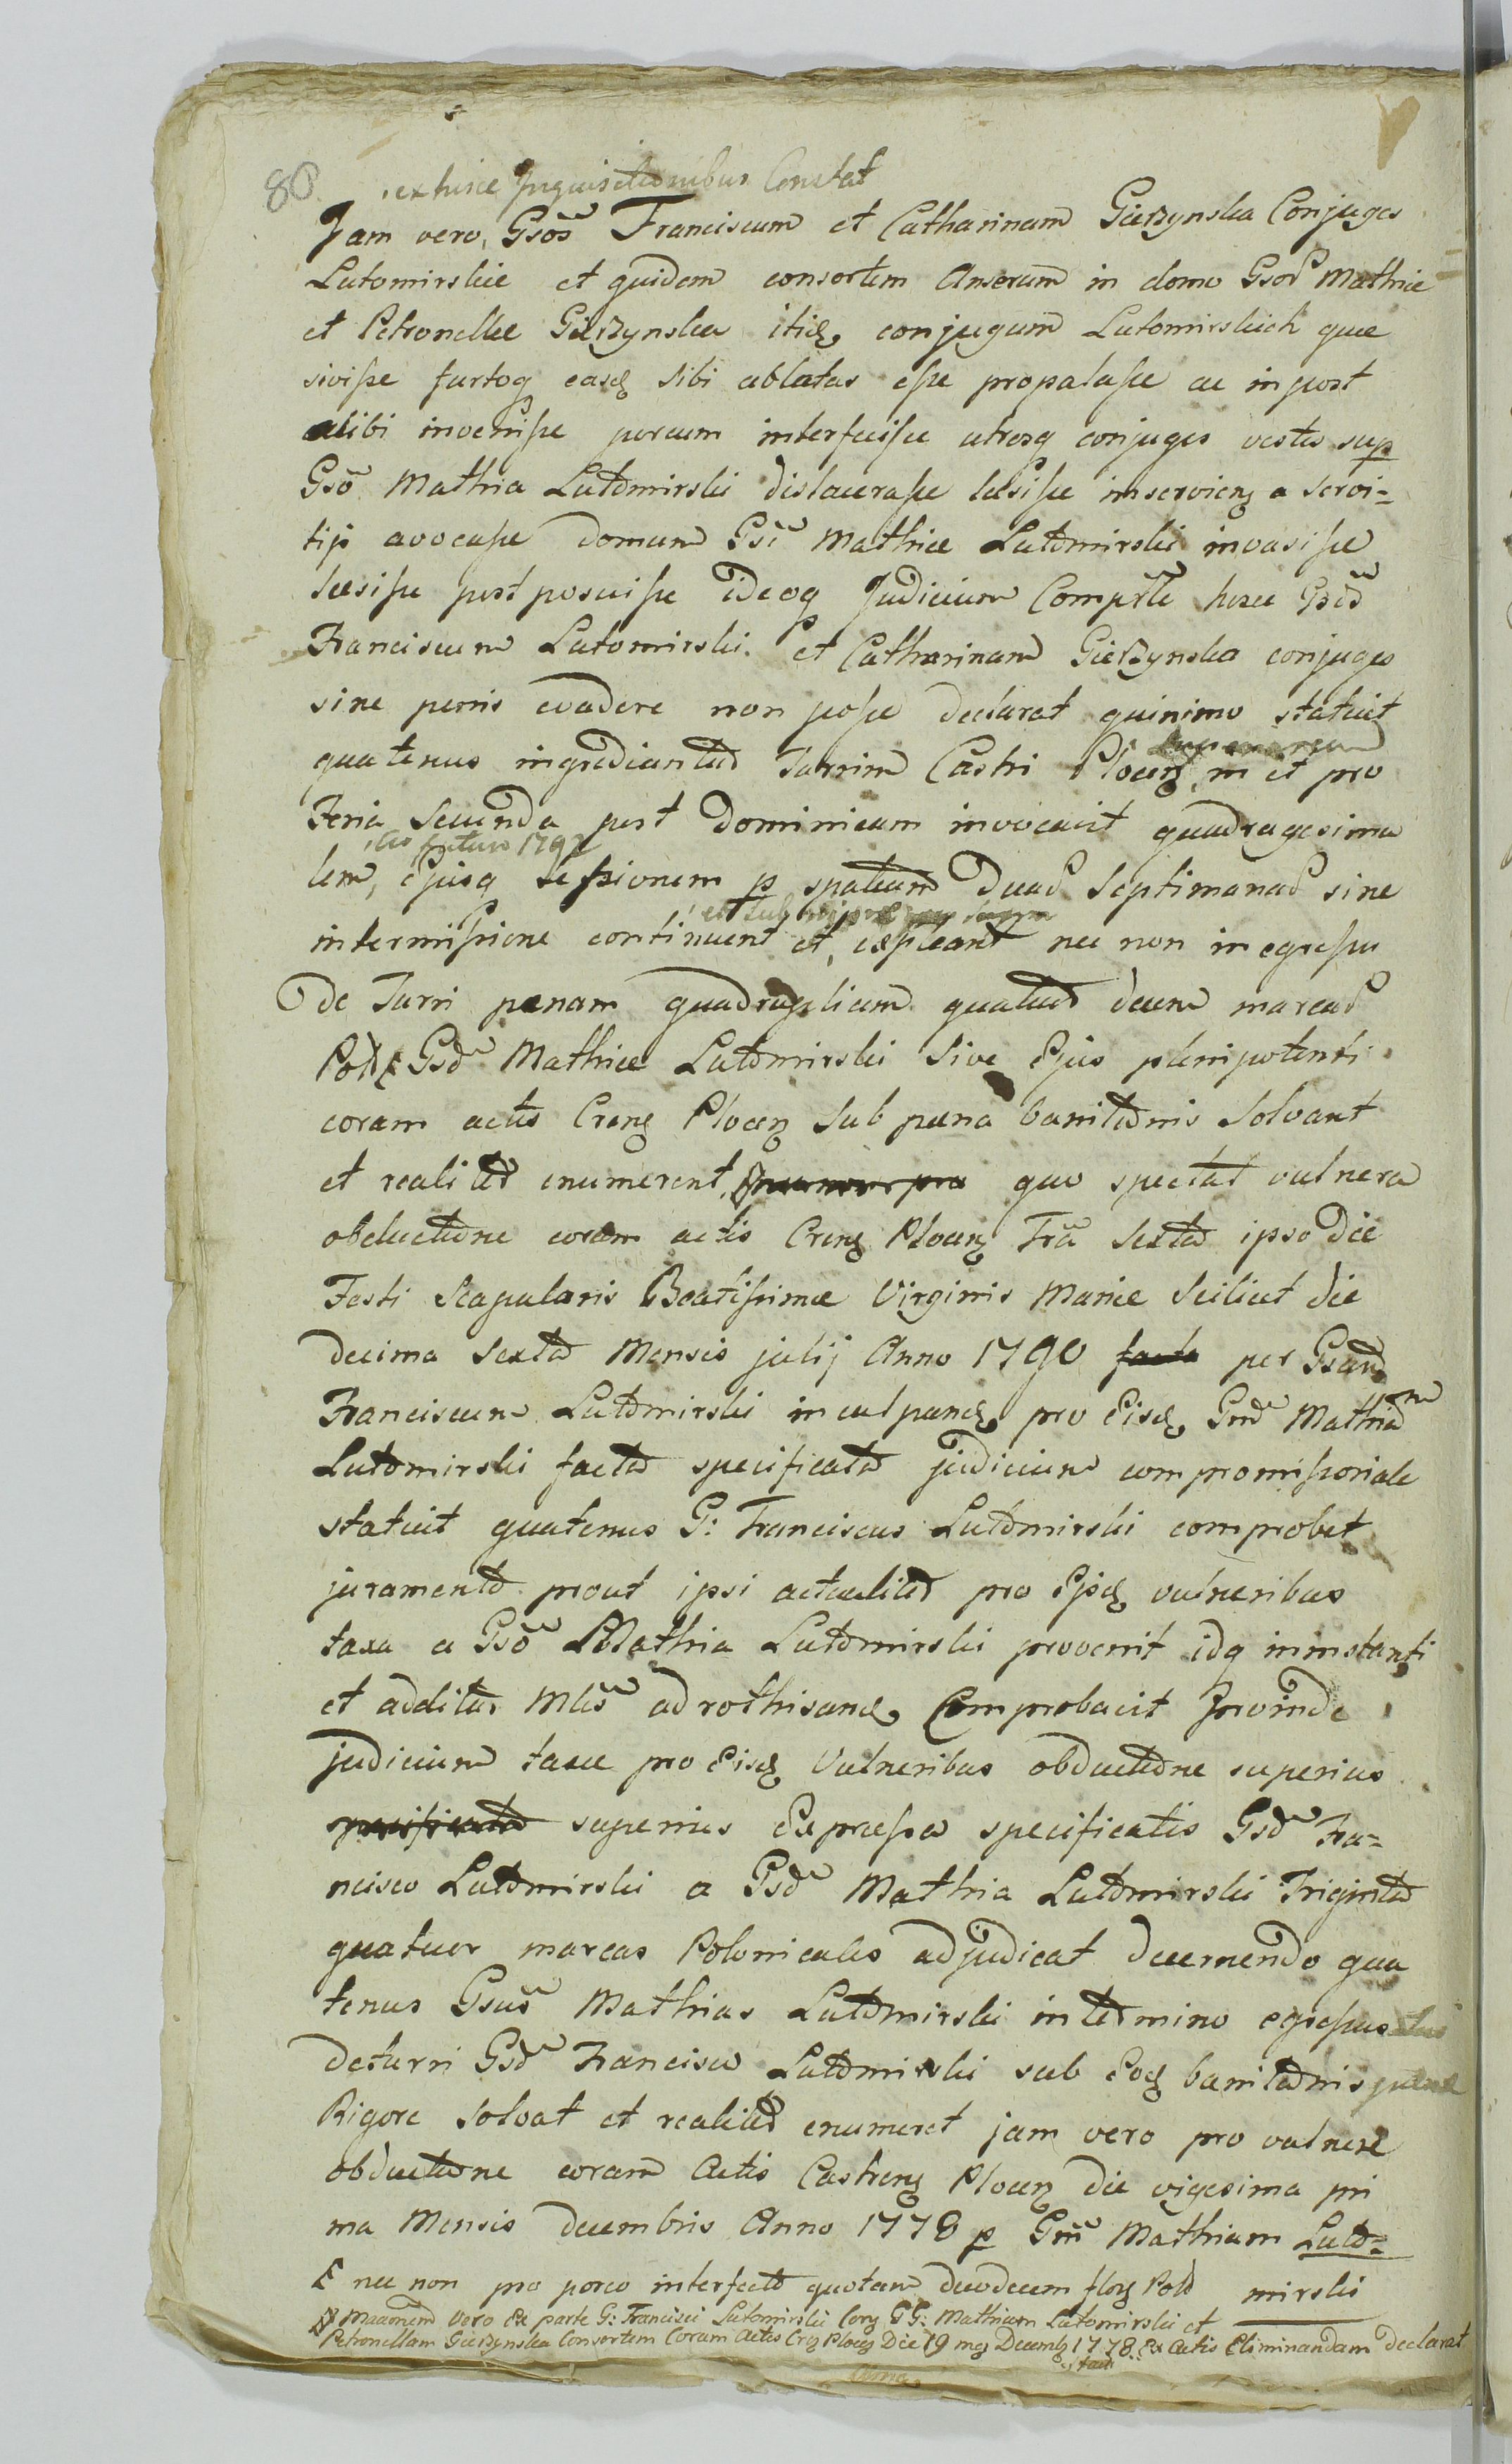 80
ex hisce Inquisitionibus Constat
Jam vero, Gsos Franciscum et Catharinam Gierzynska Conjuges
Lutomirskie et quidem consortem Anserum in domo Gsor Mathiæ
et Petronellæ Gierzynska itidę conjugum Lutomirskich quæ
sivisse furtoq easdę sibi ablatas esse propalasse ac in post
alibi invenisse porcum interfecisse utrosq conjuges vestes sup
Gso Mathia Lutomirski dislacerasse læsisse inservienę a servi=
tijs avocasse domum Gsi Mathiæ Lutomirski invasisse
læsisse post posuisse ideoq Judicium Comprle hosce Gsos
Franciscum Lutomirski et Catharinam Gierzynska conjuges
sine penis evadere non posse declarat quinimo statuit
quatenus ingrediantur Turrim Castri Plocen in et pro
Feria Secunda post Dominicam invocavit quadragesima
Ao futuro 1792
lem, Ejusq sessionem p spatium Duar Septimanar sine
intermissione continuent et, expleant nec non in egressu
De Turri penam quadruplicem quatuor decem marcar
Pol Gso Mathiæ Lutomirski sive Ejus plenipotenti
coram actis Crenę Plocen sub pena banitionis solvant
et realiter enumerent, quo spectat vulnera
obductione coram actis Crenę Plocen Fra Sexta ipso Die
Festi Scapularis Beatissimæ Virginis Mariæ Scilicet die
decima Sexta Mensis julij Anno 1790 facta per Gsum
Franciscum Lutomirski inculpandę pro Eisdę Gm Mathiam
Lutomirski facta specificata judicium compromissoriale
statuit quatenus G: Franciscus Lutomirski comprobet
juramento prout ipsi actualiter pro Ejsdę vulneribus
taxa a Gso Mathia Lutomirski provenit idq in instanti
et additur Mlis ad rothisandę Comprobavit Proinde
judicium taxæ pro Eisdę Vulneribus obductione superius
specificata superius Expresse specificatis Gso Fra=
ncisco Lutomirski a Gso Mathia Lutomirski Triginta
quatuor marcas Polonicales adjudicat decernendo qua
tenus Gsus Mathias Lutomirski in termino egressus
de turri Gso Francisco Lutomirski sub Eodę banitionis penæ
Rigore solvat et realiter enumeret jam vero pro vulnere
obductione coram Actis Castrenę Plocen die vigesima pri
ma Mensis decembris Anno 1778 p Gm Mathiam Luto=
mirski
E nec non pro porco interfecto quotam duodecem flor Pol
Maamend vero Ex parte G: Francisci Lutomirski Cory GG: Mathiam Lutomirski et
Petronellam Gierzynska Consortem Coram Actis Creę Plocę Die 19 mę Decembę 1778 Ex Actis Eliminandam declarat
fact